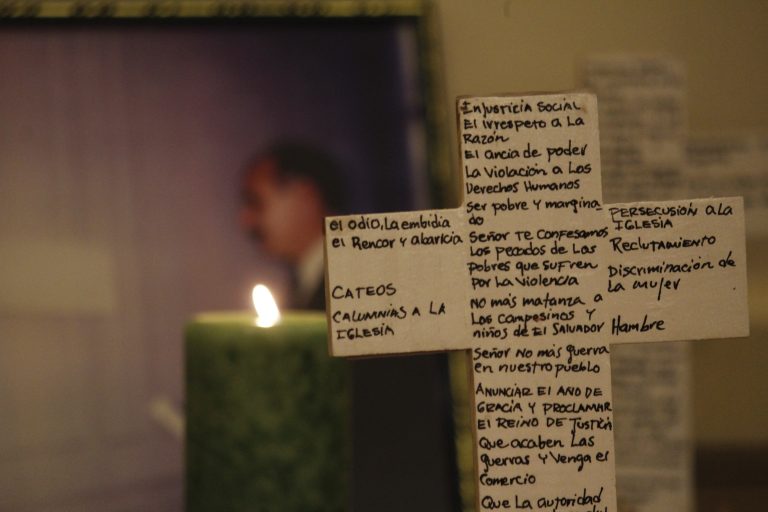 ENJUSTICIA SOCIAL
El irrespeto a La
Razón
El ancia de poder
La Violación a Los
Derechos Humanos
ser pobre y margina_
do
Señor TE CONFESAMOS
Los pecados de Los
pobres que sufren
por La Violencia
No más matanza a
Los campesinos y
niños de El SALVADOR
Señor No más guerra
en nuestro pueblo
ANUNCIAR EL AÑO DE
GRACIA Y PROCLAMAR
EL REINO DE JUSTICIA
Que acaben Las
guerras Y Venga el
Comercio
Que La autoridad
el odio, La embidia
el Rencor y abaricia
CATEOS
CALUMNIAS A LA
IGLESIA
PERSECUSIÓN A LA
IGLESIA
RECLUTAMIENTO
Discriminación de
La mujer
Hambre